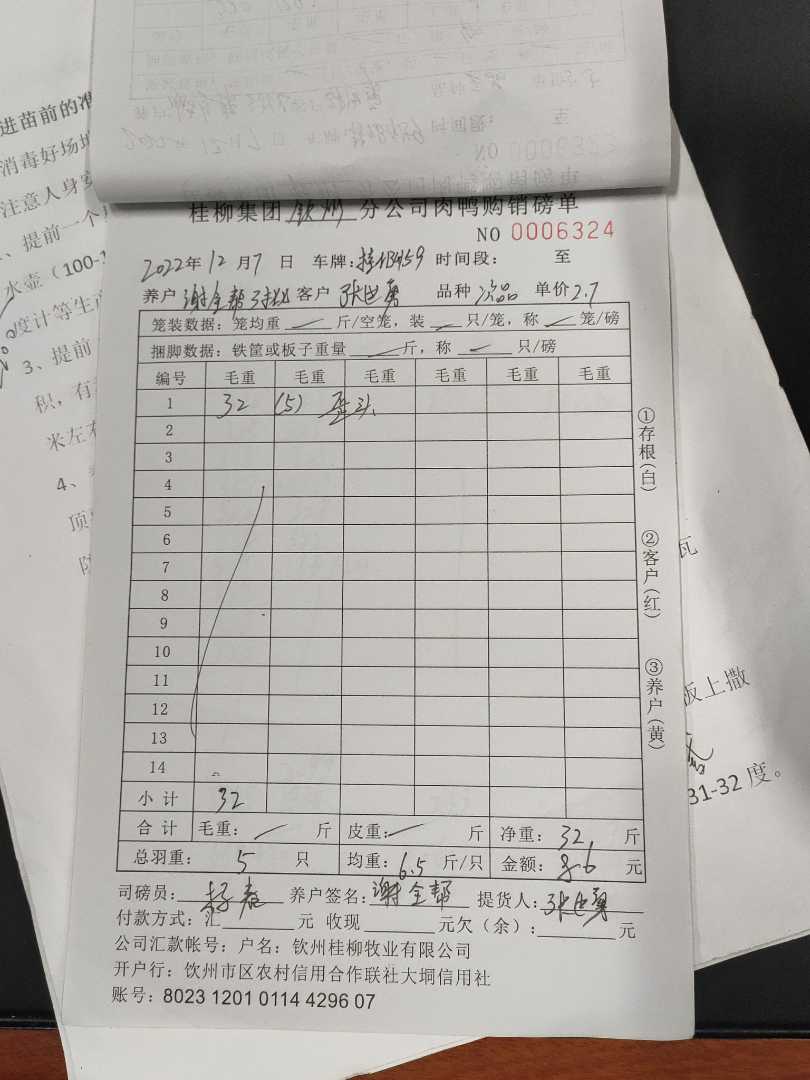 进苗前的准
消毒好场地
注意人身安
、提前一个
水壶(100-1
度计等生产
3、提前
积,有
米左右
4、
顶
防
NO 0006323
桂柳集团 钦州 分公司肉鸭购销磅单
NO 0006324
2022年 12 月 7 日 车牌: 时间段: 至
养户 谢全帮 客户 张世勇 品种 次品 单价 2.7
笼装数据:笼均重 斤/空笼,装 只/笼,称 笼/磅
捆脚数据:铁筐或板子重量 斤,称 只/磅
编号 毛重 毛重 毛重 毛重 毛重 毛重
1 32 (5) 歪头
2
3
4
5
6
7
8
9
10
11
12
13
14
小计 32
合计 毛重: 斤 皮重: 斤 净重: 32 斤
总羽重: 5 只 均重: 6.5 斤/只 金额: 86 元
司磅员: 养户签名: 谢全帮 提货人: 张世勇
付款方式:汇 元 收现 元欠(余): 元
公司汇款帐号:户名:钦州桂柳牧业有限公司
开户行:钦州市区农村信用合作联社大垌信用社
账号:8023 1201 0114 4296 07
①存根(白)
②客户(红)
③养户(黄)
瓦
板上撒
31-32 度。